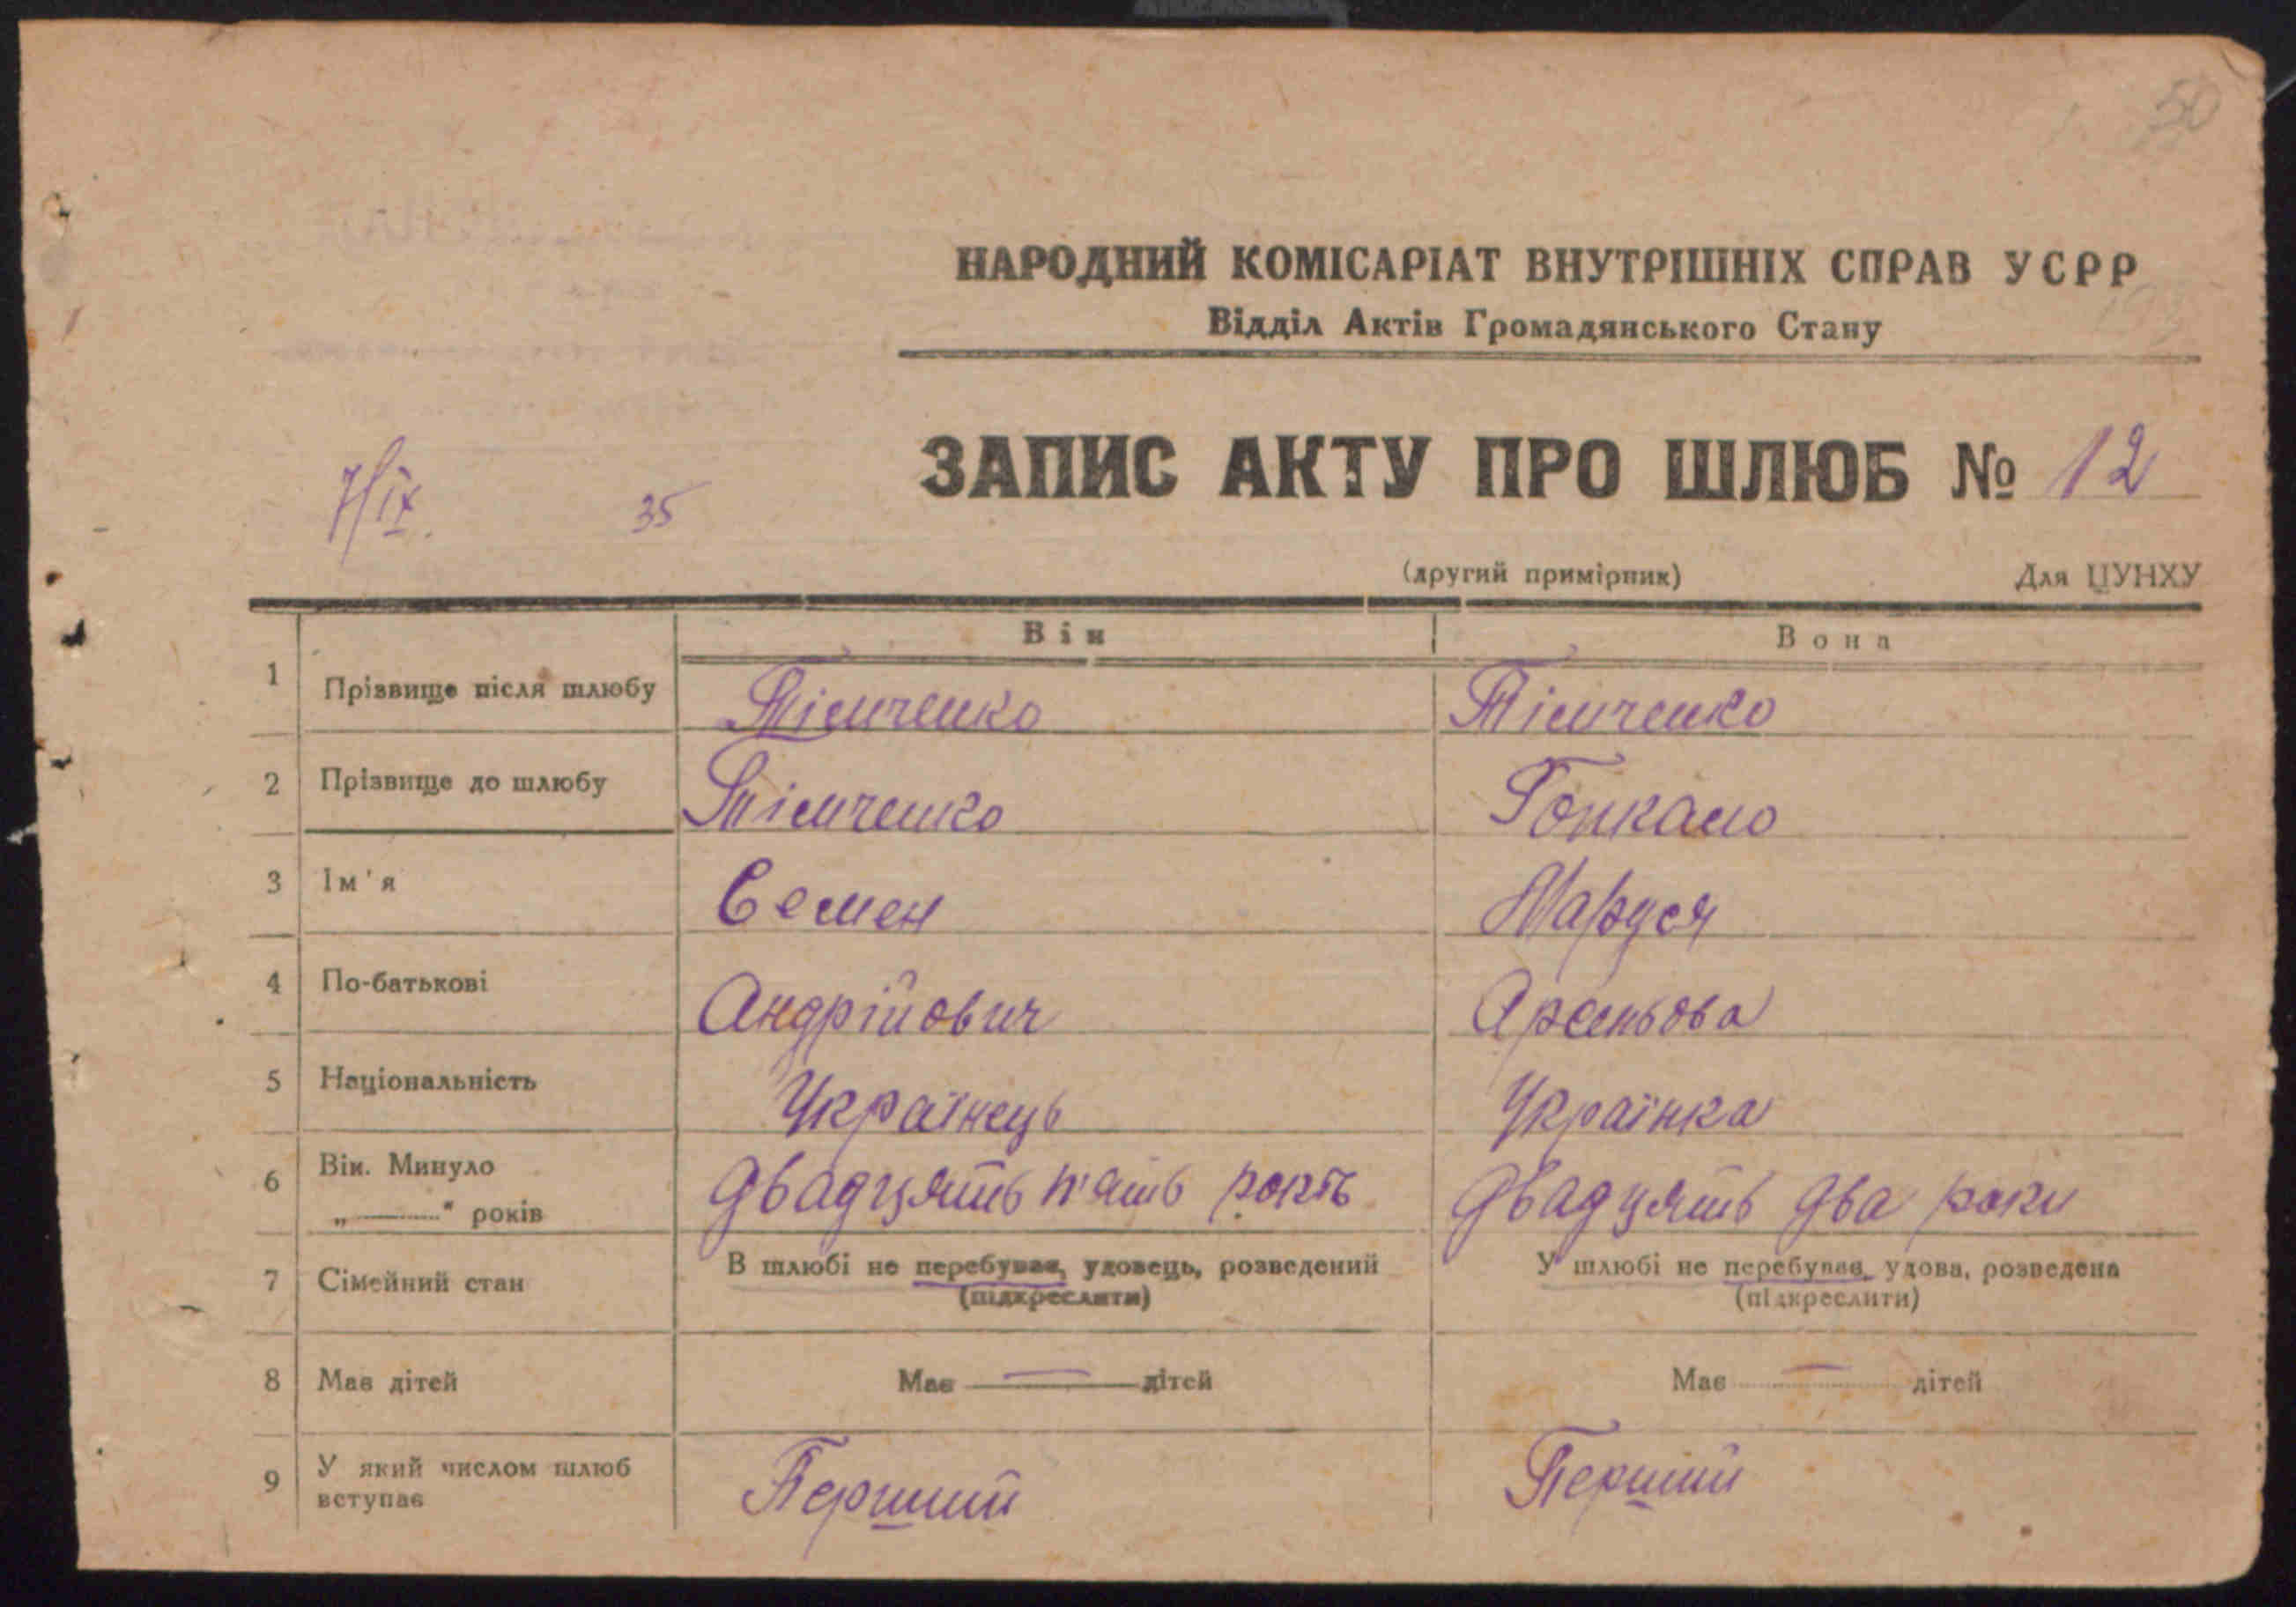 50
НАРОДНИЙ КОМІСАРІАТ ВНУТРІШНІХ СПРАВ УСРР
Відділ Актів Громадянського Стану
ЗАПИС АКТУ ПРО ШЛЮБ № 12
7/ІХ. 35
(другий примірник) Для ЦУНХУ
Він Вона
1 Прізвище після шлюбу Тімченко Тімченко
2 Прізвище до шлюбу Тімченко Гопкало
3 Ім'я Семен Маруся
4 По-батькові Андрійович Арсеньова
5 Національність Українець Українка
6 Вік. Минуло двадцять п'ять років двадцять два роки
„ " років
7 Сімейний стан В шлюбі не перебував, удовець, розведений У шлюбі не перебував, удова, розведена
(підкреслити) (підкреслити)
8 Має дітей Має — дітей Має — дітей
9 У який числом шлюб Перший Перший
вступає